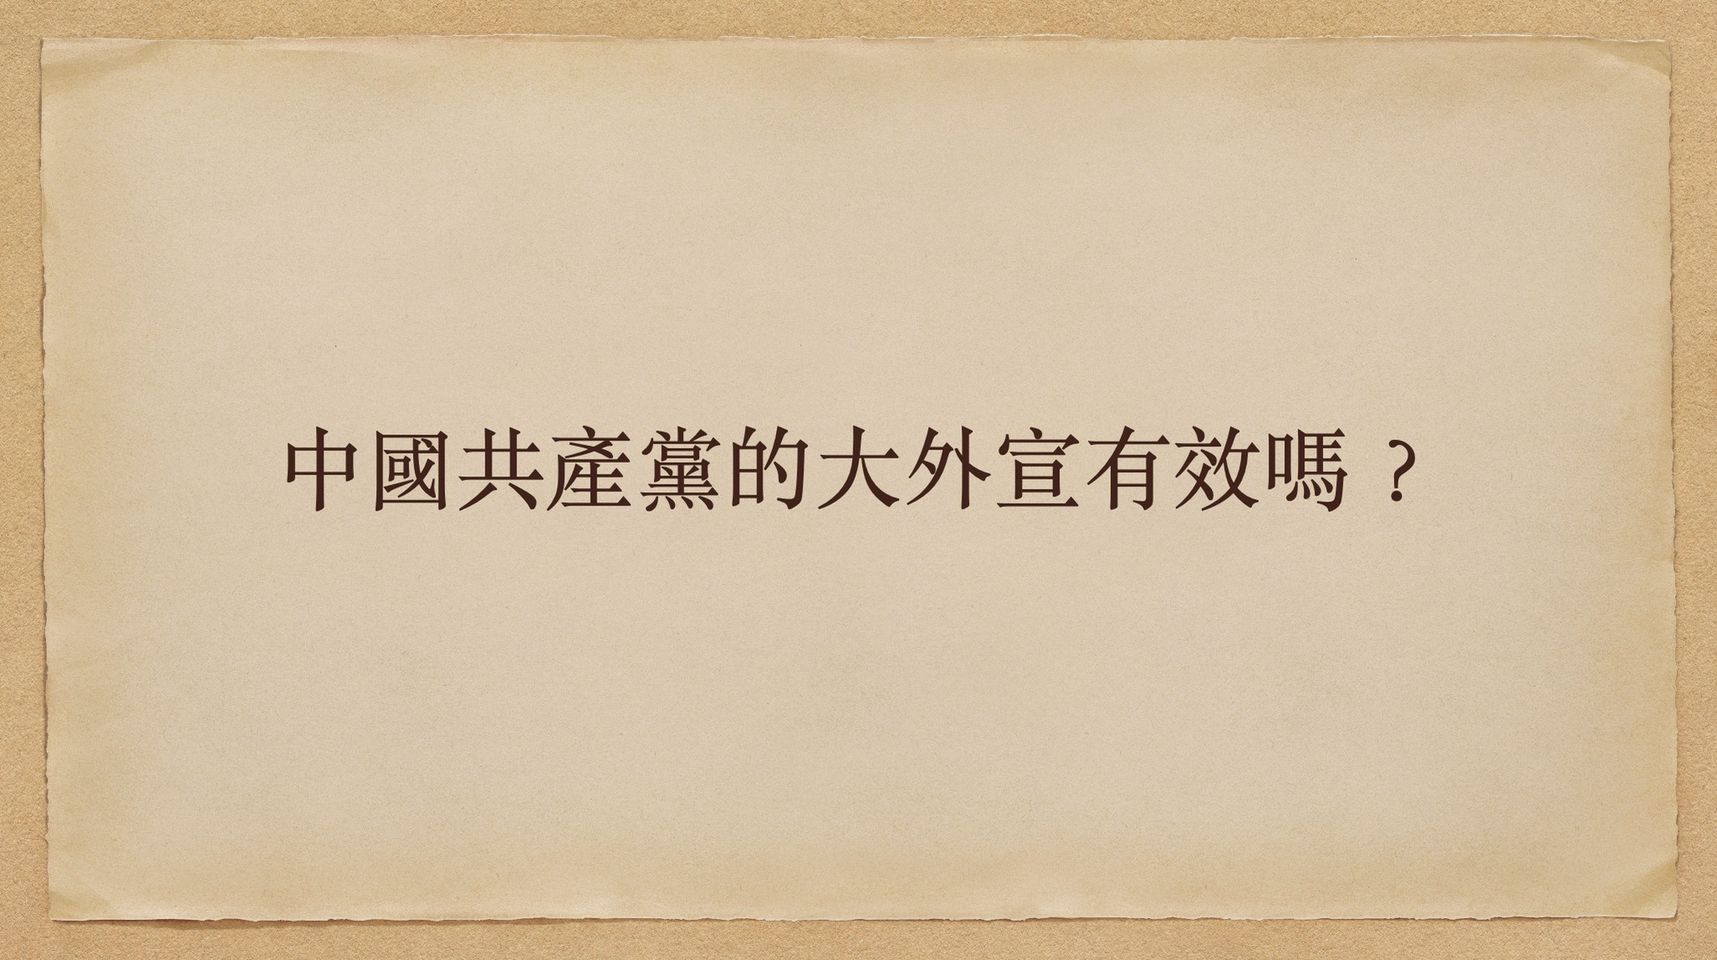 中國共產黨的大外宣有效嗎？